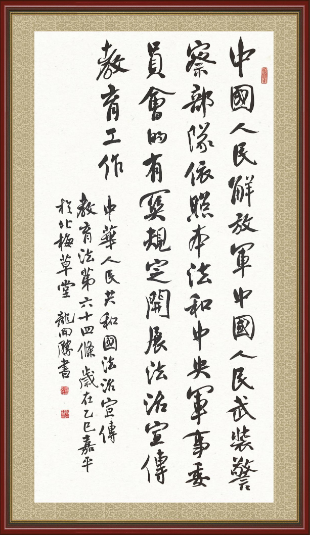 中國人民解放軍中國人民武裝警
察部隊依照本法和中央軍事委
員會的有關規定開展法治宣傳
教育工作
中華人民共和國法治宣傳
教育法第六十四條歲在乙巳嘉平
於北梅草堂 龍向勝書